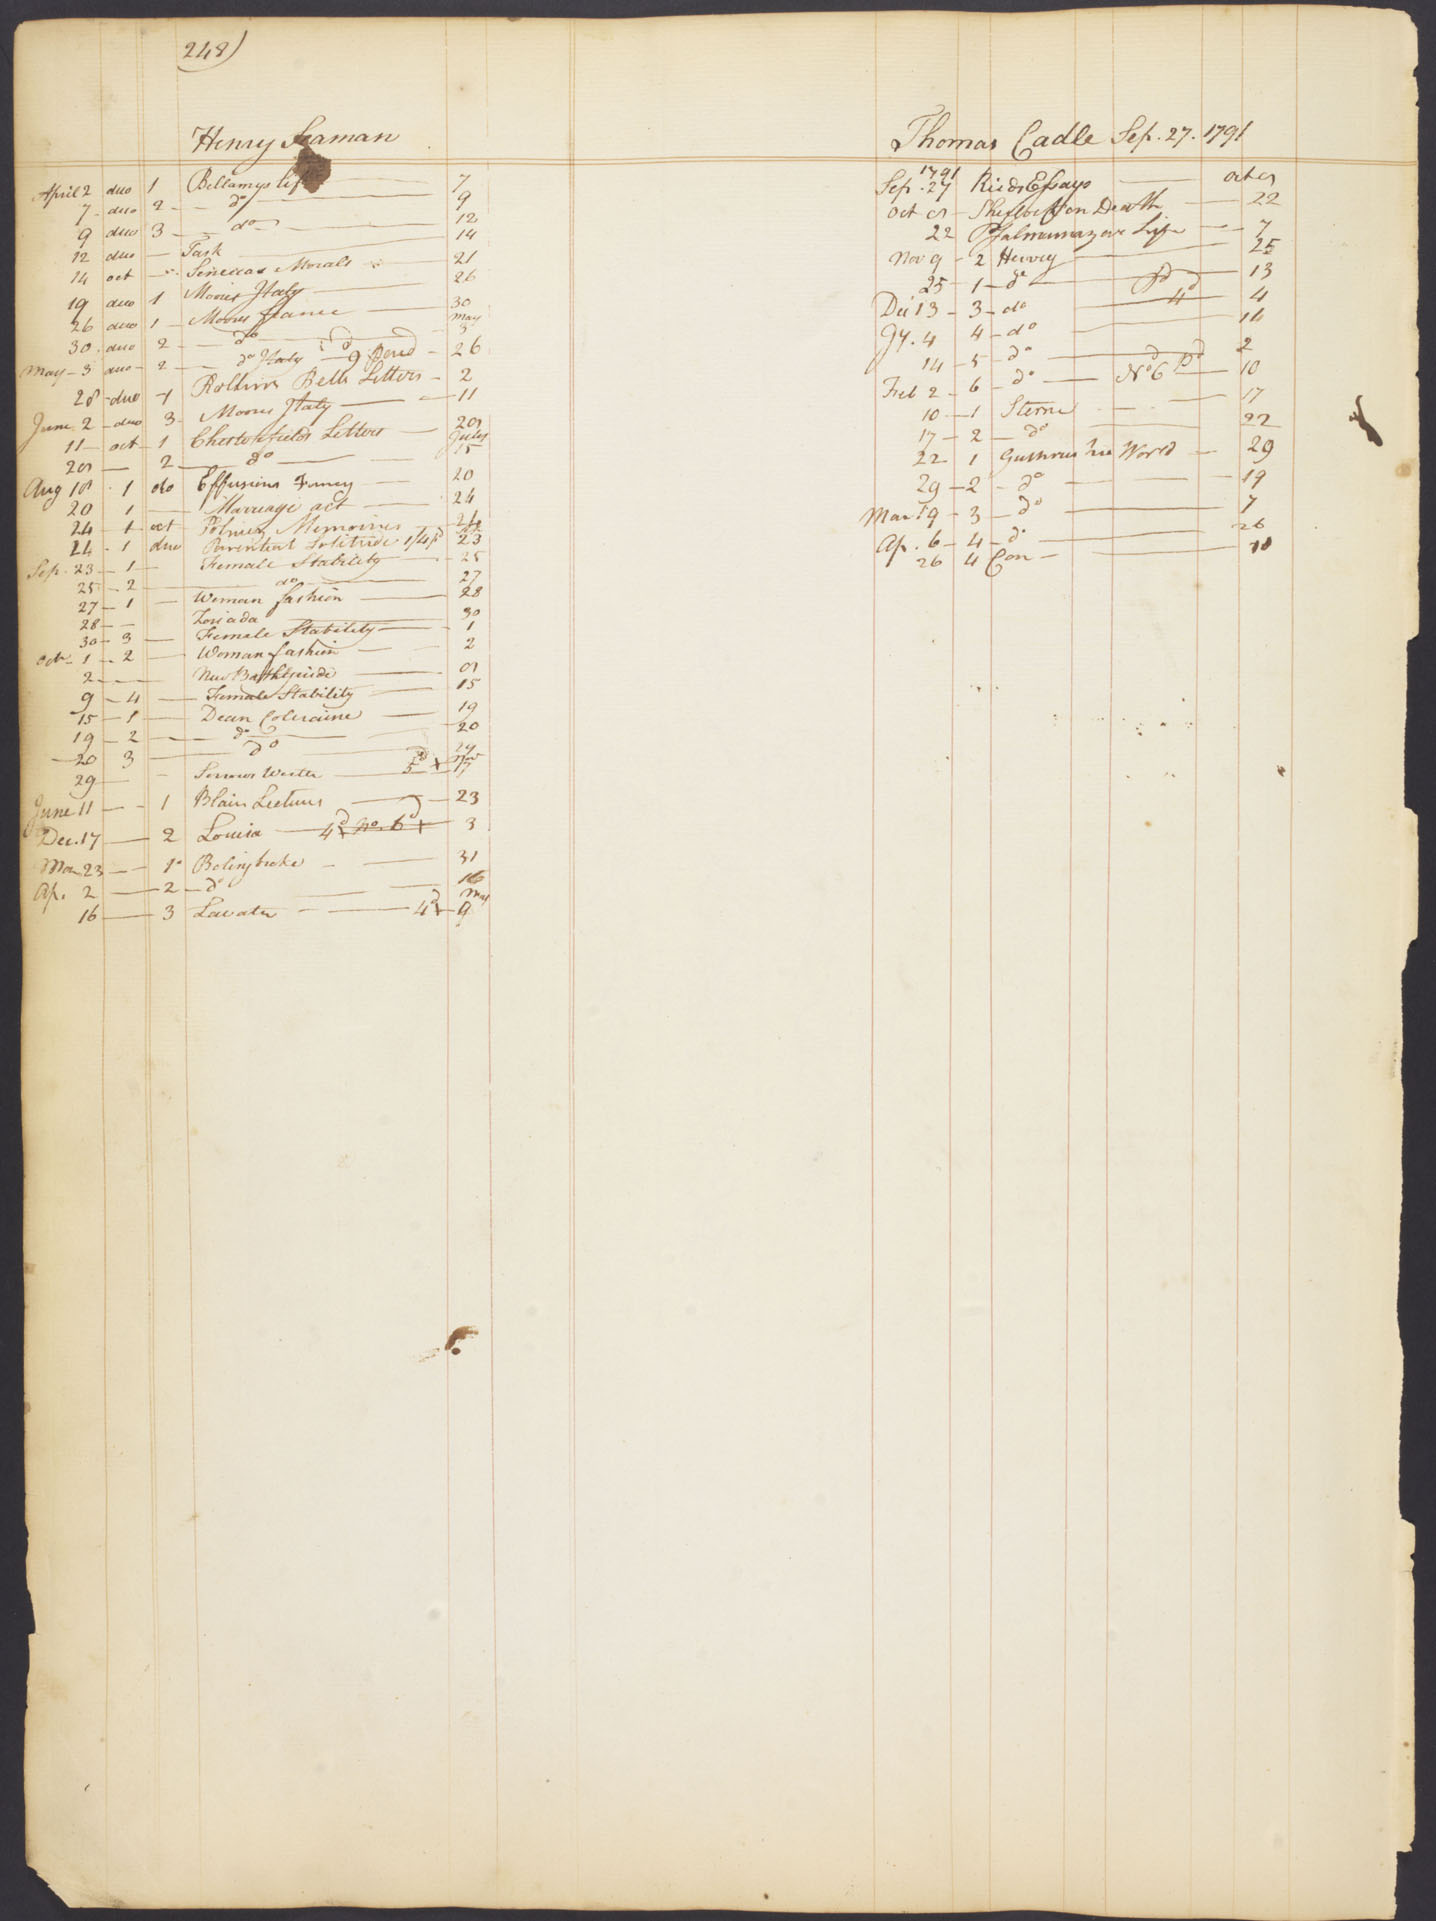 248)
Henry Seaman
April 2 duo 1 Bellamys life 7
7 duo 2 do 9
9 duo 3 do 12
12 duo Task 14
14 oct Senecas Morals 21
19 duo 1 Moores Italy 26
26 duo 1 Moores france 30
30 duo 2 do May 3
May 3 duo 2 do Italy 9d 26
28 duo 1 Rollins Bells Letters 2
June 2 duo 3 Moores Italy 11
11 oct 1 Chesterfields Letters 28
28 2 do July 15
Aug 18 1 do Effusions Fancy 20
20 1 Marriage act 24
24 1 oct Memoires 24
24 1 duo Parential Solitude 1/4 pd 23
Sep. 23 1 Female Stability 25
25 2 do 27
27 1 Woman fashion 28
28 Zoriada 30
30 3 Female Stability 1
Octr 1 2 Woman fashion 2
2 New Bath Guide 9
9 4 Female Stability 15
15 1 Dean Coleraine 19
19 2 do 20
20 3 do 29
29 Sorrows Werter 5d Nov 17
June 11 1 Blairs Lectures 23
Dec. 17 2 Louisa 4d No. 6d 3
Mar 23 1 Bolingbroke 31
Ap. 2 2 do 16
16 3 Lavater 4d May 9
Thomas Cadle Sep. 27. 1791
1791
Sep. 27 Rieds Essays oct 8
Oct 8 Sherlock on Death 22
22 Psalmanazars Life 7
Nov 9 2 Hervey 25
25 1 do pd 13
Dec 13 3 do 4d 4
Jy. 4 4 do 14
14 5 do 2
Feb 2 6 do No 6 pd 10
10 1 Sterne 17
17 2 do 22
22 1 Guthries his World 29
29 2 do 19
Mar 19 3 do 7
Ap. 6 4 do 26
26 4 Con 10